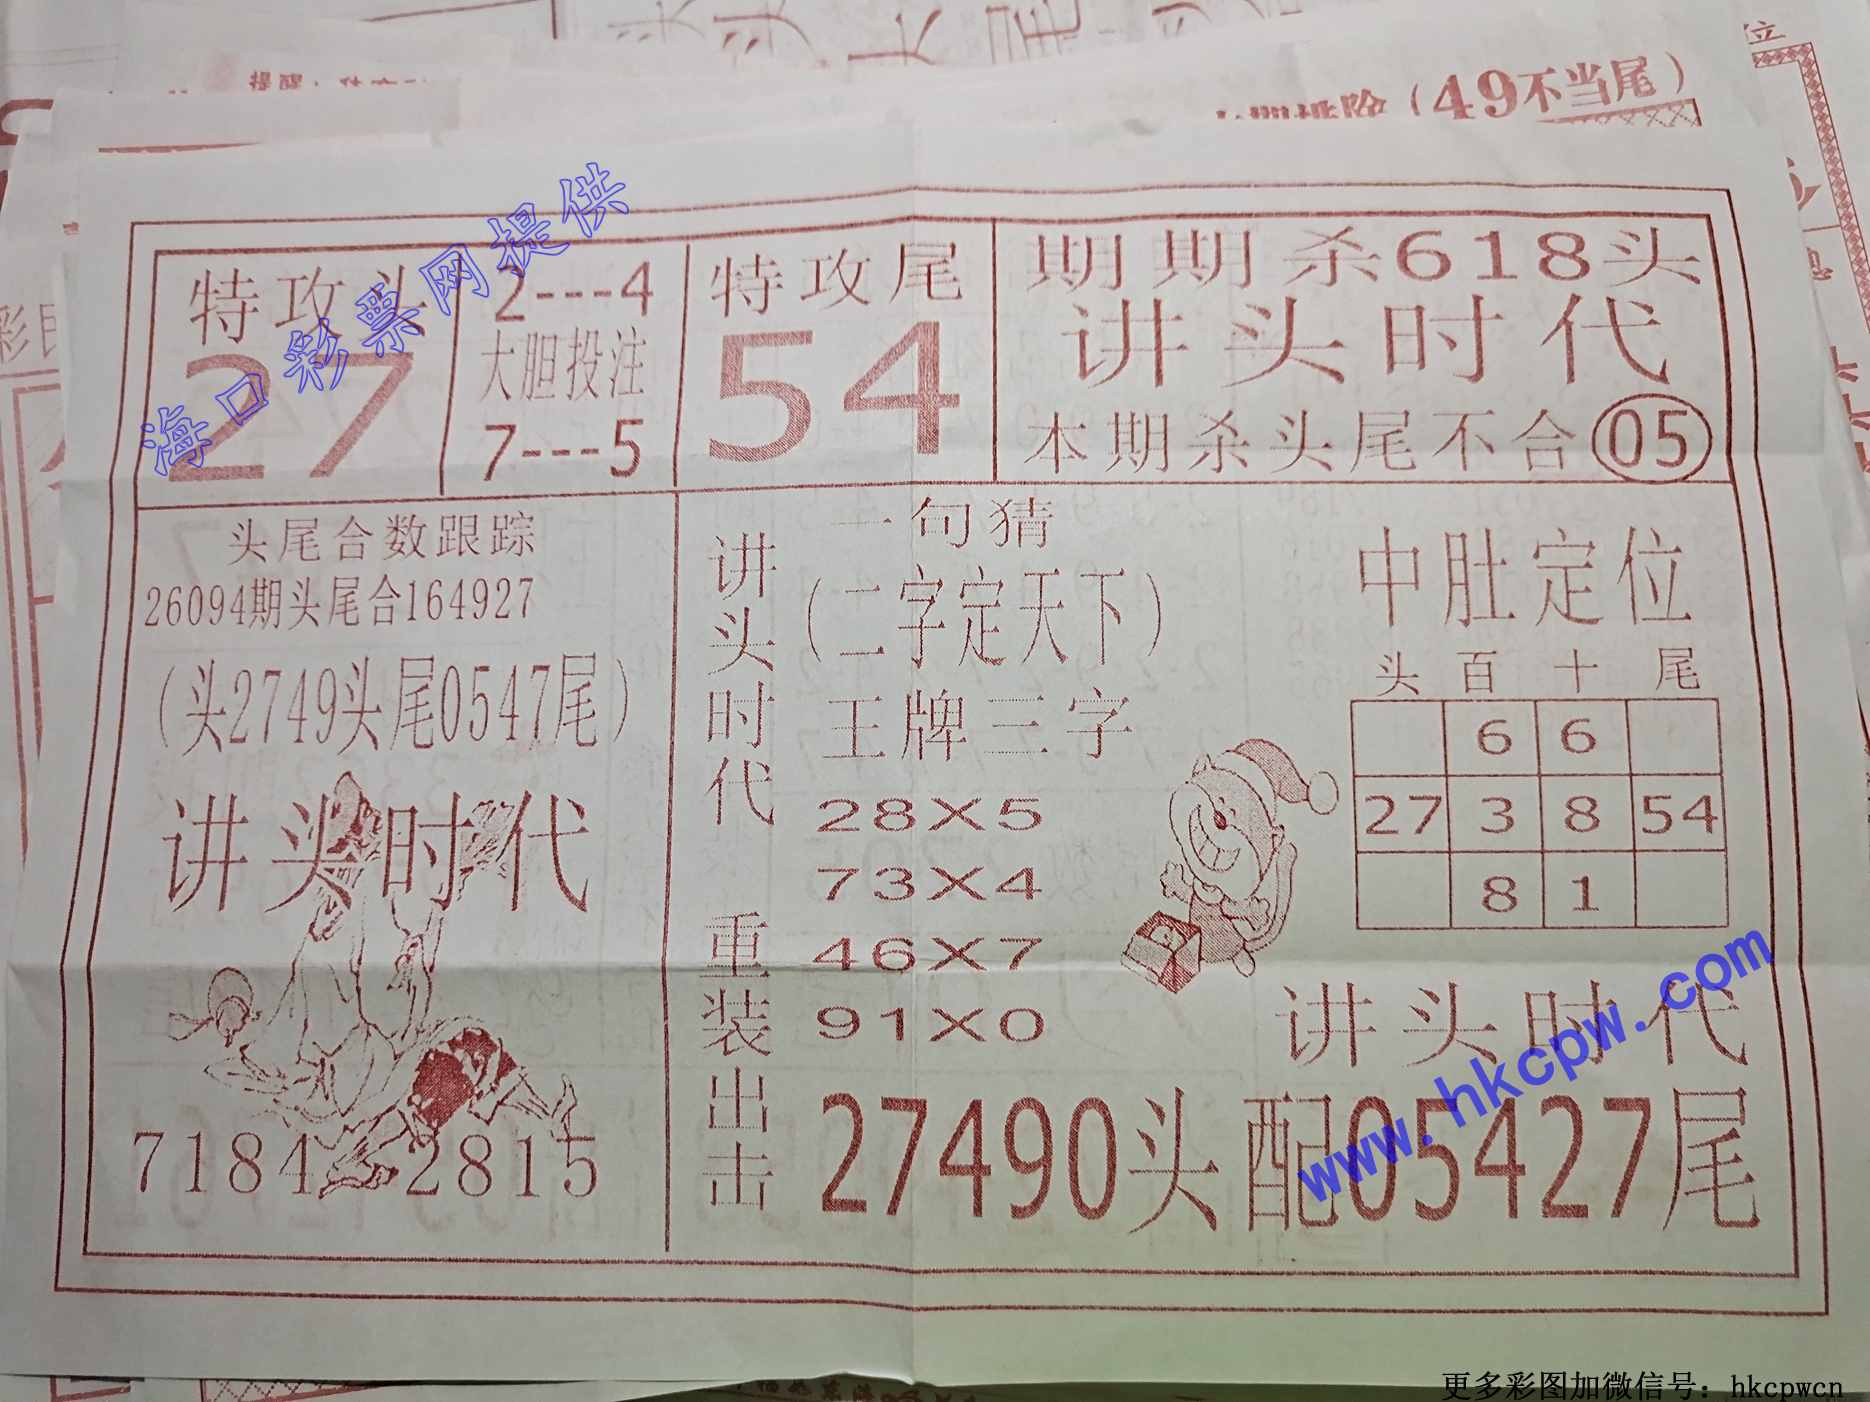 位
提醒
(49不当尾)
海口彩票网提供
特攻头
27
2---4
大胆投注
7---5
特攻尾
54
期期杀618头
讲头时代
本期杀头尾不合05
头尾合数跟踪
26094期头尾合164927
(头2749头尾0547尾)
讲头时代
7184 2815
讲头时代
重装出击
一句猜
(二字定天下)
王牌三字
28X5
73X4
46X7
91X0
中肚定位
头 百 十 尾
6 6
27 3 8 54
8 1
讲头时代
27490头配05427尾
www.hkcpw.com
更多彩图加微信号：hkcpwcn